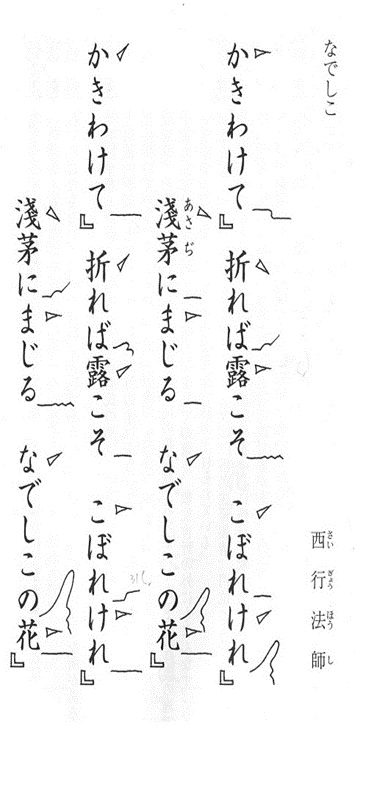 なでしこ
西行法師
さいぎょうほうし
かきわけて』 折れば露こそ こぼれけれ』
淺茅にまじる なでしこの花』
あさぢ
かきわけて』 折れば露こそ こぼれけれ』
淺茅にまじる なでしこの花』